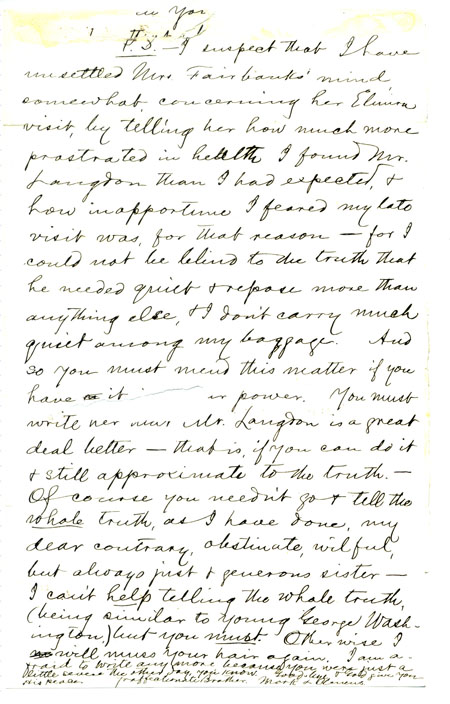 in You
P. S.—I suspect that I have
unsettled Mrs. Fairbanks' mind
somewhat, concerning her Elmira
visit, by telling her how much more
prostrated in health I found Mr.
Langdon than I had expected, &
how inopportune I feared my late
visit was, for that reason — for I
could not be blind to the truth that
he needed quiet & repose more than
anything else, & I don't carry much
quiet among my baggage. And
so you must mend this matter if you
have it power. You must
write her Mr. Langdon is a great
deal better — that is, if you can do it
& still approximate to the truth.—
Of course you needn't go & tell the
whole truth, as I have done, my
dear contrary, obstinate, wilful,
but always just & generous sister—
I can't help telling the whole truth,
(being similar to young George Wash-
ington,) but you must. Otherwise I
will muss your hair again. I am a-
fraid to write any more because you were just a
little severe the other day, you know. Good-bye & God give you
His peace. Affectionate Brother. Mark L Clemens